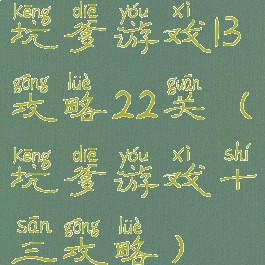 kēng diē yóu xì
坑爹游戏13
gōng lüè guān
攻略22关(
kēng diē yóu xì shí
坑爹游戏十
sān gōng lüè
三攻略)